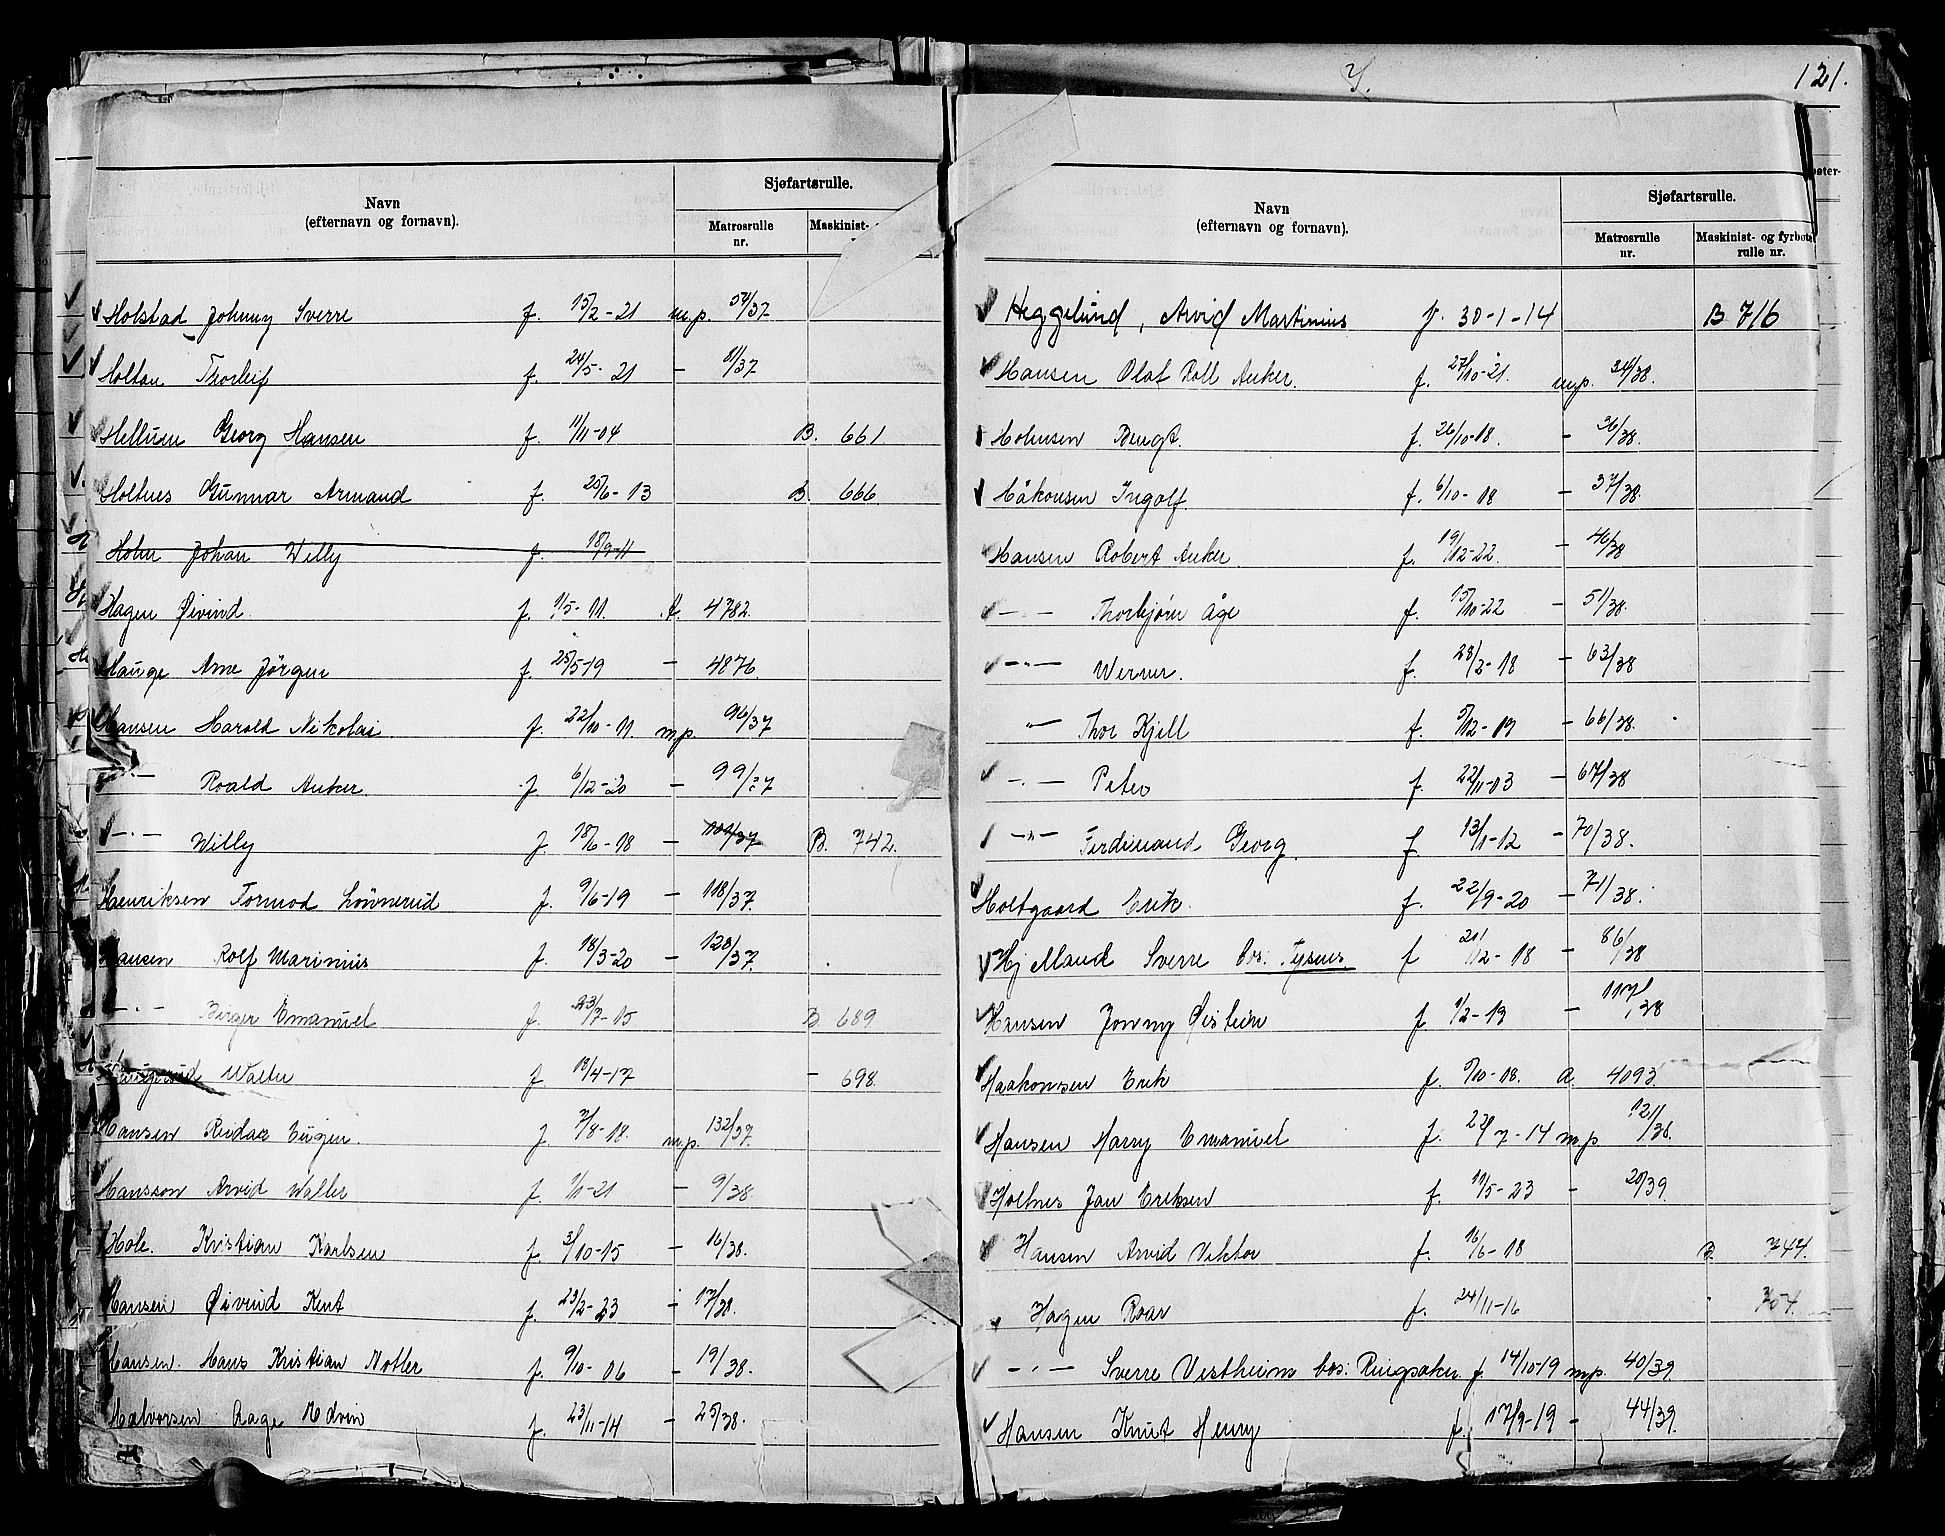 Y.
121.
Navn
(efternavn og fornavn).
Sjøfartsrulle.
Matrosrulle
nr.
Maskinist-
Holstad Johnny Sverre f. 15/2-21 m.p. 54/37
Holtan Thorleif f. 24/5-21 — 91/37
Hellum Georg Hansen f. 11/11-04 B. 661
Holtnes Gunnar Armand f. 25/6-13 B 666
Holm Johan Willy f. 18/9-11
Hagen Øivind f. 1/5-11. A. 4782.
Hauge Arne Jörgen f. 25/5-19 — 4876.
Hansen Harald Nikolai f. 22/10-11. m.p. 96/37
—"— Roald Anker f. 6/12-20 — 99/37
—"— Willy f. 18/6-18 — 101/37 B. 742.
Henriksen Tormod Lönnerud f. 9/6-19 — 118/37.
Hansen Rolf Marinius f. 18/3-20 — 128/37.
—"— Birger Emanuel f. 23/7-15 B 689
Haugerud Walter f 18/4-17 — 698.
Hansen Reidar Eugen. f 7/8-18. m.p. 132/37.
Hansson Arvid Walter f. 1/1-21 — 9/38.
Hole. Kristian Karlsen f. 3/10-15 — 16/38.
Hansen Øivind Kent f. 23/2-23 — 17/38.
Hansen. Hans Kristian Notler f. 9/10-06 — 19/38.
Halvorsen Aage Edvin f. 23/11-14 — 25/38.
Navn
(efternavn og fornavn).
Sjøfartsrulle.
Matrosrulle
nr.
Maskinist- og fyrbøter-
rulle nr.
Heggelund, Arvid Martinius f. 30-1-14 B 716
Hansen Olaf Roll Anker. f. 27/10-21. m.p. 34/38.
Holmsen Bengt. f. 26/10-18. — 36/38.
Håkonsen Ingolf. f. 6/10-18 — 37/38.
Hansen Robert Anker f. 19/12-22. — 46/38
—"— Thorbjörn Åge f. 15/10-22 — 51/38.
—"— Werner. f. 23/2-18 — 63/38
—"— Thor Kjell f. 5/12-19 — 66/38.
—"— Peter f. 22/11-03 — 67/38
—"— Ferdinand Georg. f. 13/1-12 — 70/38.
Holtgaard Erik. f. 22/9-20 — 71/38.
Hjelland Sverre bos: Tysnes f 21/12-18 — 86/38
Hansen Jonny Øistein f 1/2-19 — 117/38
Haakonsen Erik f. 9/10-18. A 4093.
Hansen Harry Emanuel f. 22/7-14 m.p. 121/38.
Holtnes Jan Eriksen f. 11/5-23 — 20/39.
Hansen Arvid Viktor f. 16/6-18 B. 744.
Hagen Roar f. 24/11-16 " 754.
—"— Sverre Vestheim bos: Ringsaker f. 14/10-19 m.p. 40/39
Hansen Knut Henry f. 17/9-19 — 44/39.